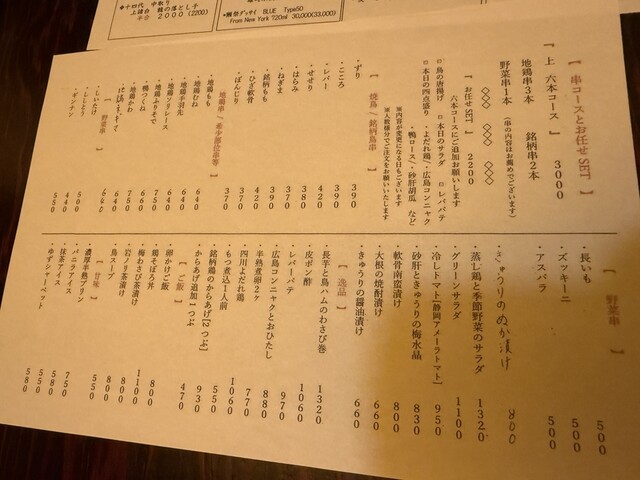 ◆十四代
2000(2200)
From New York 720ml 30,000(33,000)
【串コースとお任せSET】
『上 六本コース』 3000
地鶏串3本 銘柄串2本
野菜串1本 (串の内容はお薦めでございます)
◇◇◇ ◇◇◇
【お任せSET】 2200
六本コースにご追加お願いします
□鳥の唐揚げ □本日のサラダ □レバパテ
□本日の四点盛り
・よだれ鶏/・広島コンニャク
・鴨ロース/・砂肝胡瓜 など
※内容が変更になる日もございます
※人数様分でご注文をお願いいたします
【焼鳥/銘柄鳥串】
・ずり 390
・こころ 390
・レバー 420
・せせり 370
・はらみ 380
・ねぎま 390
・銘柄もも 420
・ひざ軟骨 390
・ぼんじり 370
【地鶏串/希少部位串等】
・地鶏もも 640
・地鶏むね 640
・地鶏手羽先
・地鶏ソリレース 640
・地鶏ふりそで 640
・鴨つくね 750
・地鶏かわ 640
640
【野菜串】
・しいたけ 500
・ししとう 440
・ギンナン 550
【野菜串】
・長いも 500
・ズッキーニ 500
・アスパラ 500
・きゅうりのぬか漬け 800
・蒸し鶏と季節野菜のサラダ 1320
・グリーンサラダ 1100
・冷しトマト[静岡アメーラトマト] 950
・砂肝ときゅうりの梅水晶 830
・軟骨南蛮漬け 800
・大根の焼酎漬け 660
・きゅうりの醤油漬け 660
【逸品】
・長芋と鳥ハムのわさび巻 1320
・皮ポン酢 1060
・レバーパテ 970
・広島コンニャクとおひたし 880
・半熟煮卵2ヶ 770
・四川よだれ鶏 1060
・もつ煮込1人前
・銘柄鶏のからあげ[2つぶ] 930
・からあげ追加1つぶ 470
【ご飯】
・卵かけご飯
・鶏そぼろ丼 800
・梅わさび茶漬け 1100
・岩ノリ茶漬け 800
・鳥スープ 800
【甘味】
・濃厚半熟プリン 550
・バニラアイス 750
・抹茶アイス 550
・ゆずシャーベット 580